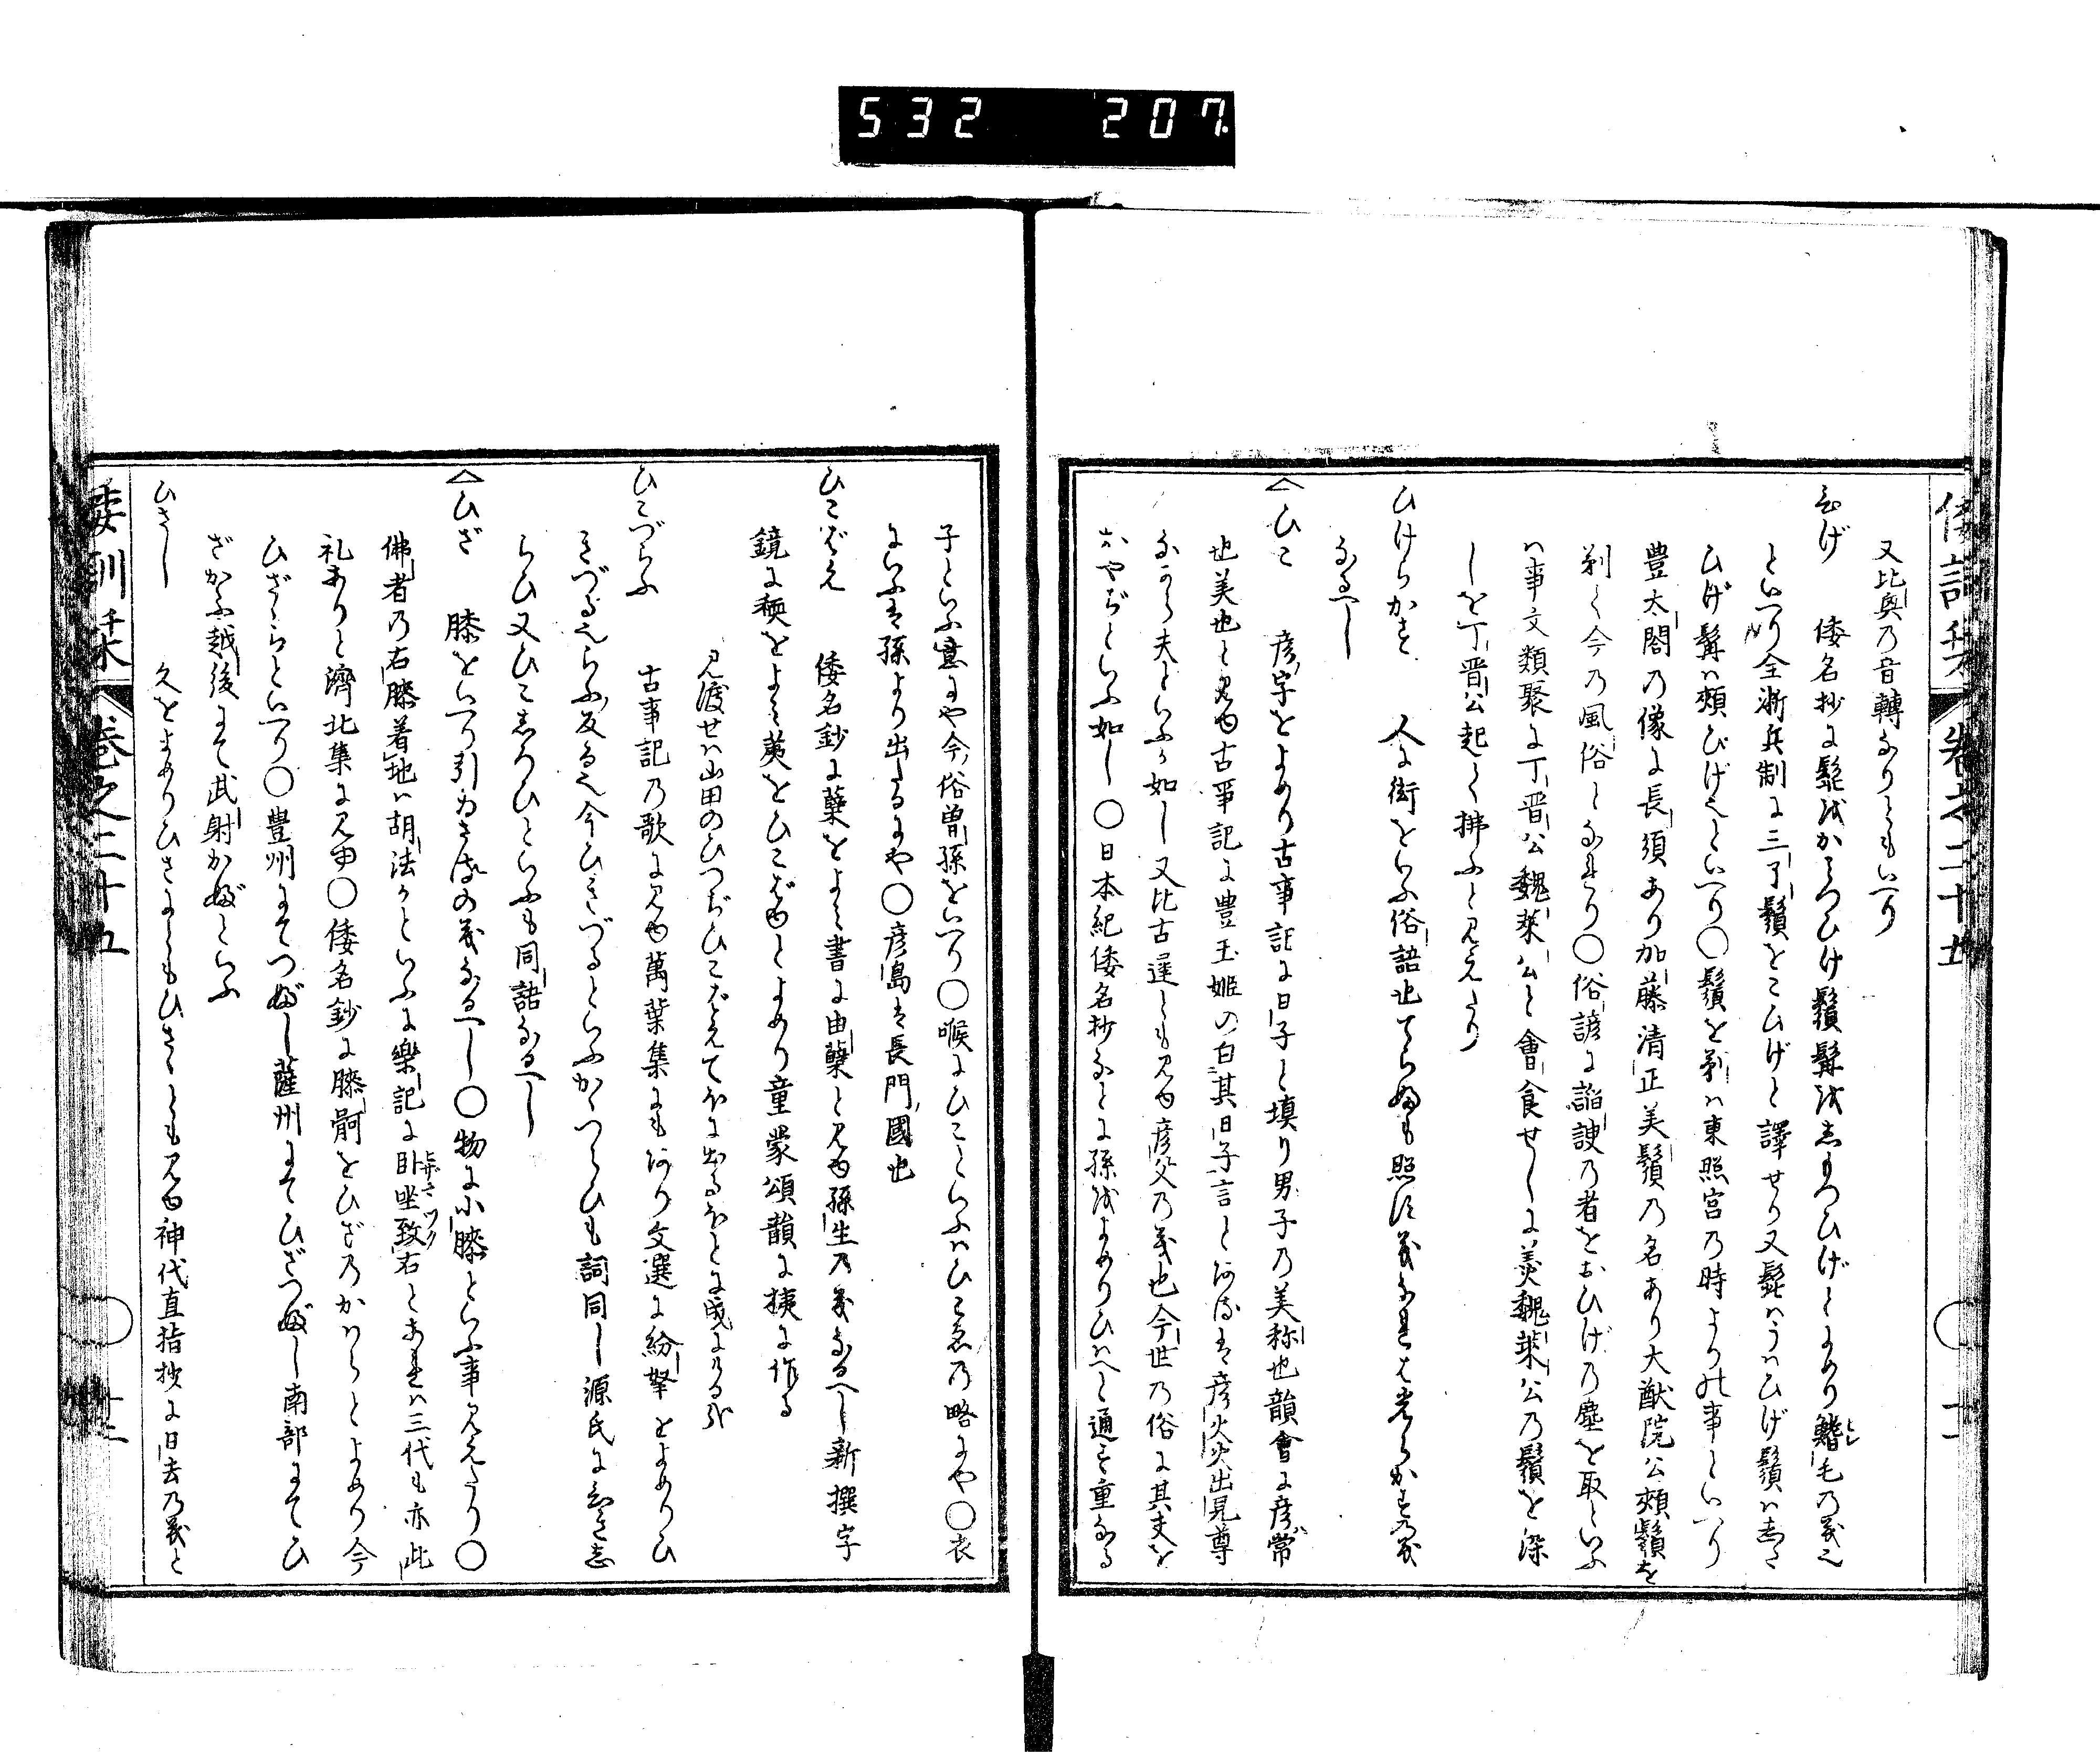 532 207
倭訓栞 巻之二十五
又比奥乃音轉なりともいへり
ひげ 倭名抄に髭をかみつひけ鬚髯をしもつひげとよめり鰭毛乃義也
といへり全浙兵制に三了鬚をこひげと譯せり又髭ハうハひげ鬚ハした
ひげ髯ハ頬ひげ也といへり○鬚を剃ハ東照宮乃時よりの事といへり
豊太閤乃像に長須あり加藤清正美鬚乃名あり大猷院公頬鬚を
剃て今乃風俗となれり○俗諺に諂諛乃者をおひげ乃塵を取といふ
ハ事文類聚に丁晋公魏莱公と會食せしに羹魏莱公乃鬚を深
しを丁晋公起て拂ふと見えたり
ひけらかす 人に衒をいふ俗語也てらふも照す義なれは光らかす乃義
なるへし
△ひこ 彦字をよめり古事記に日子と填り男子乃美称也韻會に彦常
也美也と見ゆ古事記に豊玉姫の白其日子言とあるは彦火火出見尊
なから夫といふか如し又比古遅とも見ゆ彦父乃義也今世乃俗に其夫を
おやぢといふ如し○日本紀倭名抄なとに孫をよめりひハへと通す重なる
子といふ意にや今俗曽孫をいへり○喉にひこといふハひこゑ乃略にや○衣
にいふは孫より出たるにや○彦島は長門國也
ひこばえ 倭名鈔に蘖をよみ書に由蘖と見ゆ孫生乃義なるへし新撰字
鏡に稬をよみ荑をひこばゆとよめり童蒙頌韻に荑に作る
見渡せハ山田のひつぢひこばえてほに出るほとに成にける哉
ひこづらふ 古事記乃歌に見ゆ萬葉集にもあり文選に紛拏をよめりひ
きづる也らふ反る也今ひきづるといふかゝつらひも詞同し源氏にひきし
らひ又ひこしろひといふも同語なるへし
△ひざ 膝をいへり引ゐさまの義なるへし○物に小膝といふ事見えたり○
佛者乃右膝着地ハ胡法かといふに樂記に卧坐致右とあれハ三代も亦此
礼ありと濟北集に見ゆ○倭名鈔に膝𩩲をひざ乃かハらとよめり今
ひざゝらといへり○豊州にてつぶし薩州にてひざつぶし南部にてひ
ざかふ越後にて武射かぶといふ
ひさし 久をよめりひさにもひさゝとも見ゆ神代直指抄に日去乃義と
倭訓栞 巻之二十五